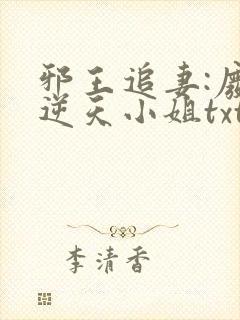 邪王追妻:废
逆天小姐txt
李清香